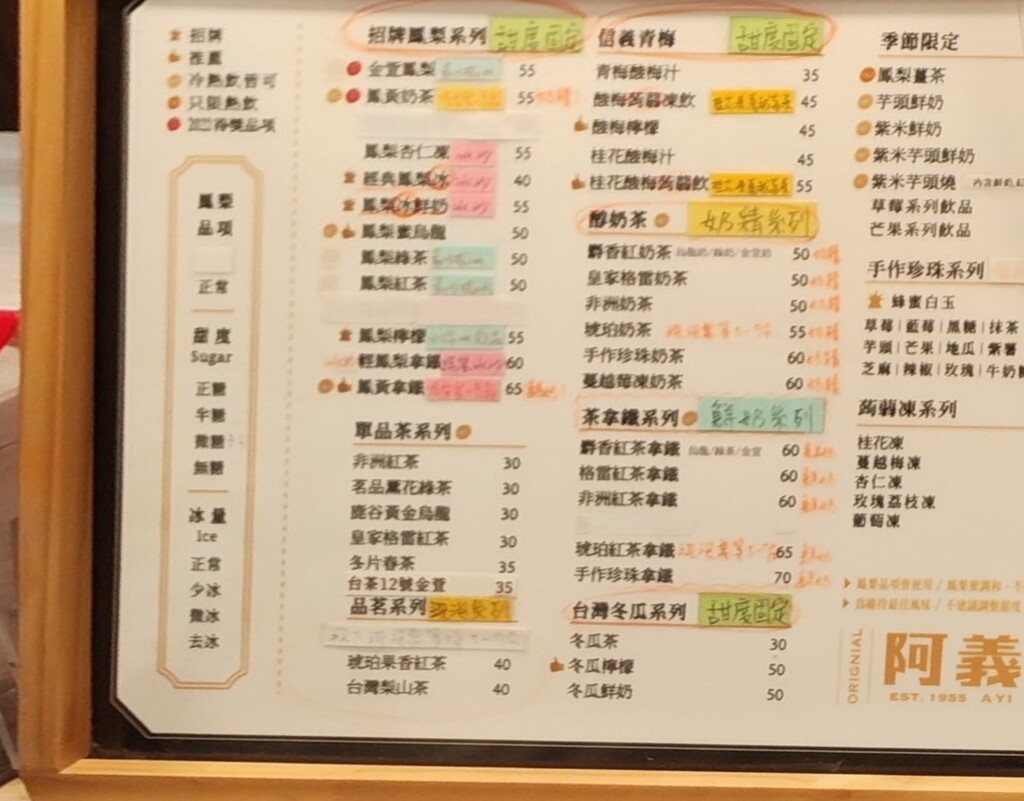 招牌
推薦
冷熱飲皆可
只限熱飲
2022得獎品項
鳳梨
品項
正常
甜度
Sugar
正糖
半糖
微糖
無糖
冰量
Ice
正常
少冰
微冰
去冰
招牌鳳梨系列 甜度固定
金萱鳳梨 55
鳳黃奶茶 55
鳳梨杏仁凍 55
經典鳳梨冰 40
鳳梨冰鮮奶 55
鳳梨蜜烏龍 50
鳳梨綠茶 50
鳳梨紅茶 50
鳳梨檸檬 55
輕鳳梨拿鐵 60
鳳黃拿鐵 65
單品茶系列
非洲紅茶 30
茗品薰花綠茶 30
鹿谷黃金烏龍 30
皇家格雷紅茶 30
冬片春茶 35
台茶12號金萱 35
品茗系列
琥珀果香紅茶 40
台灣梨山茶 40
信義青梅 甜度固定
青梅酸梅汁 35
酸梅蒟蒻凍飲 45
酸梅檸檬 45
桂花酸梅汁 45
桂花酸梅蒟蒻飲 55
醇奶茶 奶精系列
爵香紅奶茶 烏龍奶/綠奶/金萱奶 50
皇家格雷奶茶 50
非洲奶茶 50
琥珀奶茶 55
手作珍珠奶茶 60
蔓越莓凍奶茶 60
茶拿鐵系列 鮮奶系列
爵香紅茶拿鐵 烏龍/綠茶/金萱 60
格雷紅茶拿鐵 60
非洲紅茶拿鐵 60
琥珀紅茶拿鐵 65
手作珍珠拿鐵 70
台灣冬瓜系列 甜度固定
冬瓜茶 30
冬瓜檸檬 50
冬瓜鮮奶 50
季節限定
鳳梨薑茶
芋頭鮮奶
紫米鮮奶
紫米芋頭鮮奶
紫米芋頭燒
草莓系列飲品
芒果系列飲品
手作珍珠系列
蜂蜜白玉
草莓|藍莓|黑糖|抹茶
芋頭|芒果|地瓜|紫薯
芝麻|辣椒|玫瑰|牛奶糖
蒟蒻凍系列
桂花凍
蔓越梅凍
杏仁凍
玫瑰荔枝凍
葡萄凍
ORIGNIAL
阿義
EST. 1955 AYI